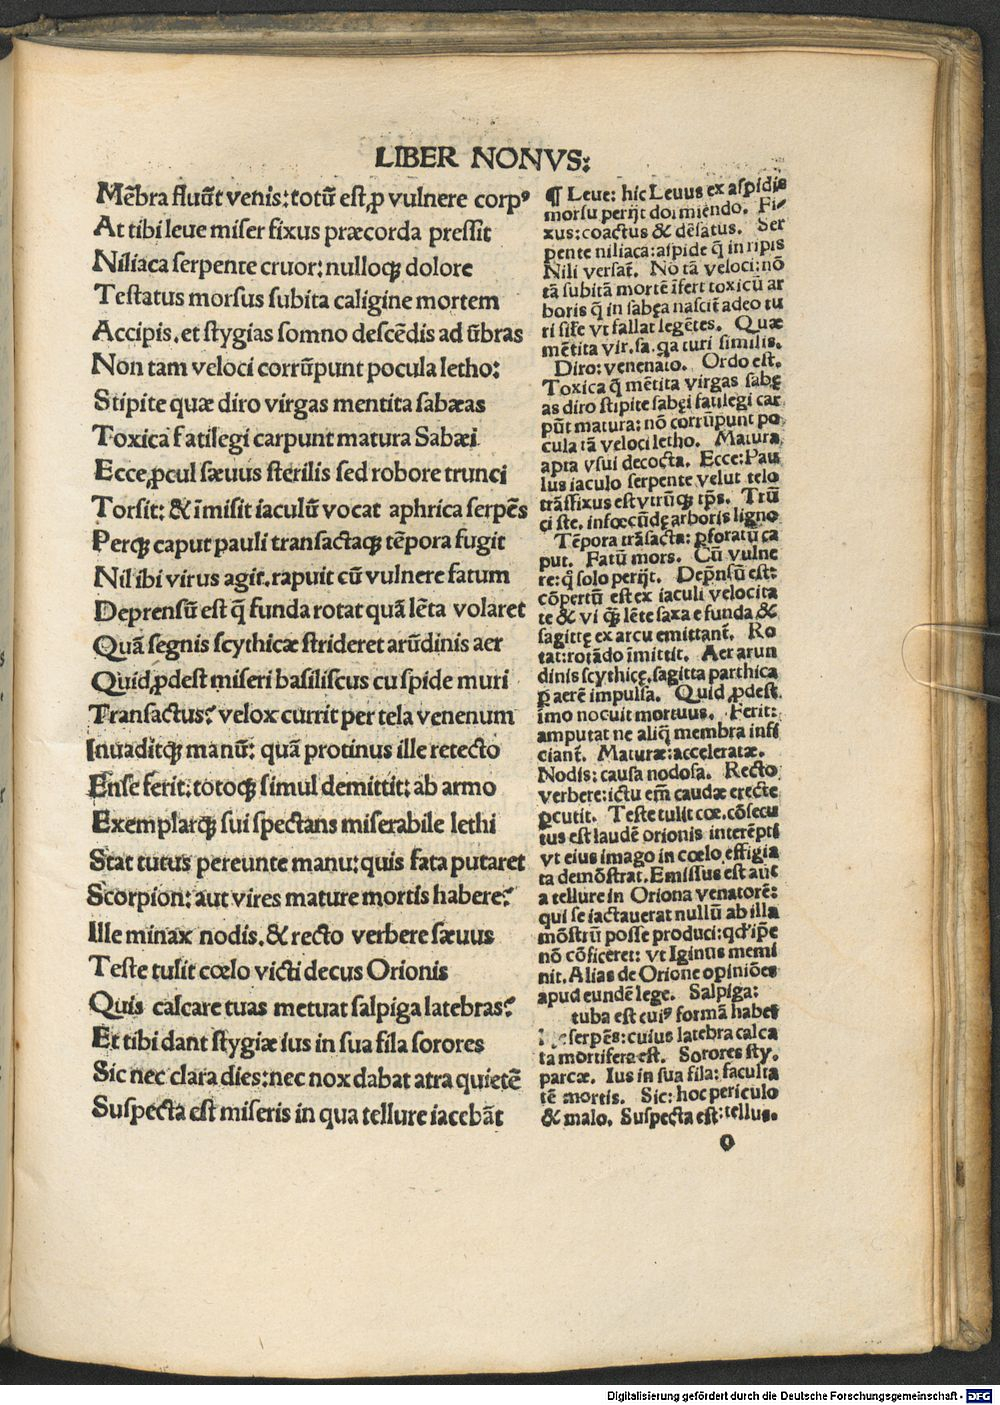 LIBER NONVS:
Mēbra fluūt venis: totū est ꝓ vulnere corpꝰ
At tibi leue miser fixus præcorda pressit
Niliaca serpente cruor: nulloqꝫ dolore
Testatus morsus subita caligine mortem
Accipis. et stygias somno descēdis ad ūbras
Non tam veloci corrūpunt pocula letho:
Stipite quæ diro virgas mentita sabæas
Toxica fatilegi carpunt matura Sabæi
Ecce ꝓcul sæuus sterilis sed robore trunci
Torsit: & īmisit iaculū vocat aphrica serpēs
Perqꝫ caput pauli transactaqꝫ tēpora fugit
Nil ibi virus agit. rapuit cū vulnere fatum
Deprensū est q̄ funda rotat quā lēta volaret
Quā segnis scythicæ strideret arūdinis aer
Quid ꝓdest miseri basiliscus cuspide muri
Transactus? velox currit per tela venenum
Inuaditqꝫ manū: quā protinus ille retecto
Ense ferit: totoqꝫ simul demittit: ab armo
Exemplarqꝫ sui spectans miserabile lethi
Stat tutus pereunte manu: quis fata putaret
Scorpion: aut vires mature mortis habere?
Ille minax nodis. & recto verbere sæuus
Teste tulit cœlo victi decus Orionis
Quis calcare tuas metuat salpiga latebras?
Et tibi dant stygiæ ius in sua fila sorores
Sic nec clara dies: nec nox dabat atra quietē
Suspecta est miseris in qua tellure iacebāt
¶ Leue: hic Leuus ex aspidis
morsu perijt dormiendo. Fi-
xus: coactus & dēsatus. Ser
pente niliaca: aspide q̄ in ripis
Nili versat̄. No tā veloci: nō
tā subitā mortē īfert toxicū ar
boris q̄ in sabęa nascit̄ adeo tu
ri sile vt fallat legētes. Quæ
mētita vir. sa. qa turi similis.
Diro: venenato. Ordo est.
Toxica q̄ mētita virgas sabę
as diro stipite sabęi fatilegi car
pūt matura: nō corrūpunt po
cula tā veloci letho. Matura
apta vsui decocta. Ecce: Pau
lus iaculo serpente velut telo
trāsfixus est vtrūqꝫ tp̄s. Trū
ci ste. infœcūdę arboris ligno
Tēpora trāsacta: ꝑforatū ca
put. Fatū mors. Cū vulne
re: q̄ solo perijt. Dep̄nsū est:
cōpertū est ex iaculi velocita
te & vi qꝫ lēte saxa e funda &
sagittę ex arcu emittant̄. Ro
tat: rotādo īmittit. Aer arun
dinis scythicę. sagitta parthica
ꝑ aerē impulsa. Quid ꝓdest.
īmo nocuit mortuus. Ferit:
amputat ne aliq̄ membra infi
ciant̄. Maturæ: acceleratæ.
Nodis: causa nodosa. Recto
verbere: ictu em̄ caudæ erecte
ꝑcutit. Teste tulit cœ. cōsecu
tus est laudē orionis interēpti
vt eius imago in cœlo effigia
ta demōstrat. Emissus est aūt
a tellure in Oriona venatorē:
qui se iactauerat nullū ab illa
mōstrū posse produci: qd' ip̄e
nō cōficeret: vt Iginus memi
nit. Alias de Orione opiniōes
apud eundē lege. Salpiga:
tuba est cuiꝰ formā habet
serpēs: cuius latebra calca
ta mortifera est. Sorores sty.
parcæ. Ius in sua fila: faculta
tē mortis. Sic: hoc periculo
& malo. Suspecta est: tellus.
o
Digitalisierung gefördert durch die Deutsche Forschungsgemeinschaft - DFG